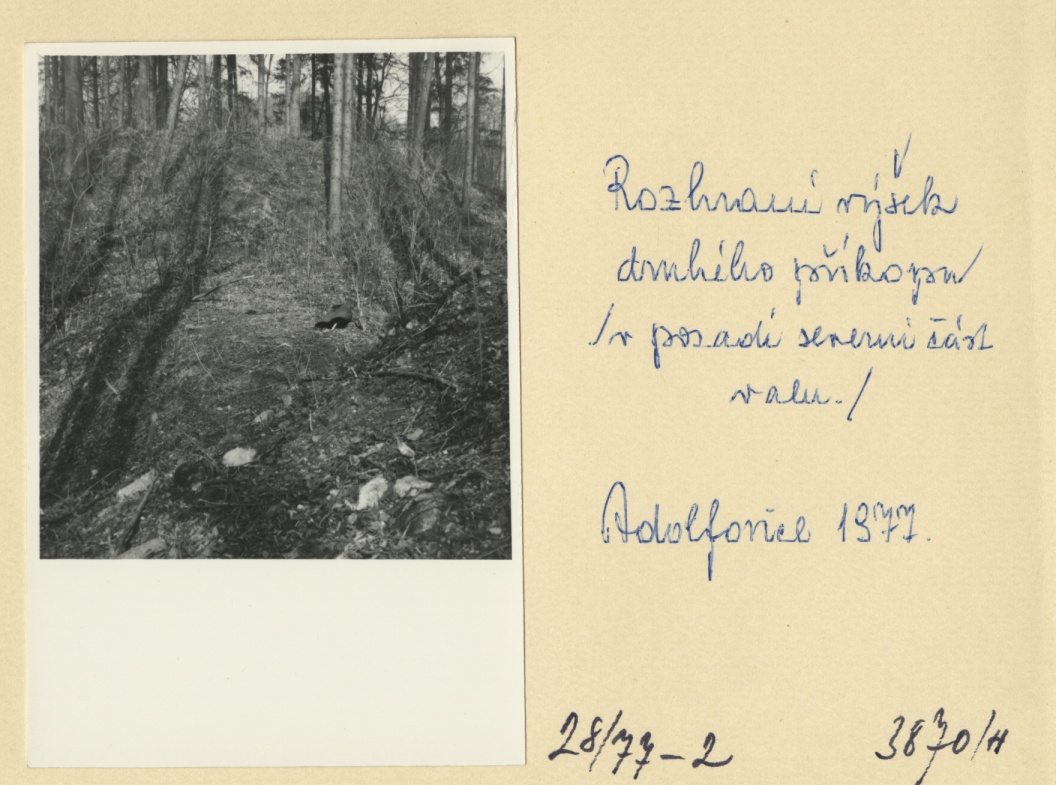 Rozhraní výšek
druhého příkopu
/v posadí severní část
valu./
Adolfovice 1977.
28/77-2 3870/H